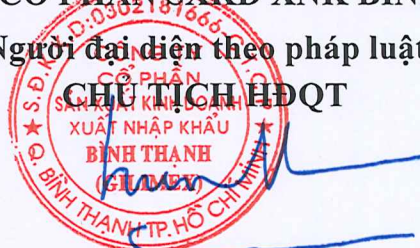 Người đại diện theo pháp luật
CHỦ TỊCH HĐQT
S.Đ.K.K.D:0302181666
CÔNG TY
CỔ PHẦN
SẢN XUẤT KINH DOANH
XUẤT NHẬP KHẨU
BÌNH THẠNH
(GILIMEX)
Q. BÌNH THẠNH TP. HỒ CHÍ MINH